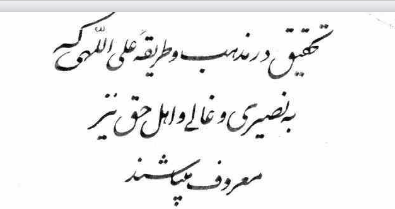 تحقیق در مذهب و طریقهٔ علی اللّهی که
به نصیری و غالی و اهل حق نیز
معروف میباشند